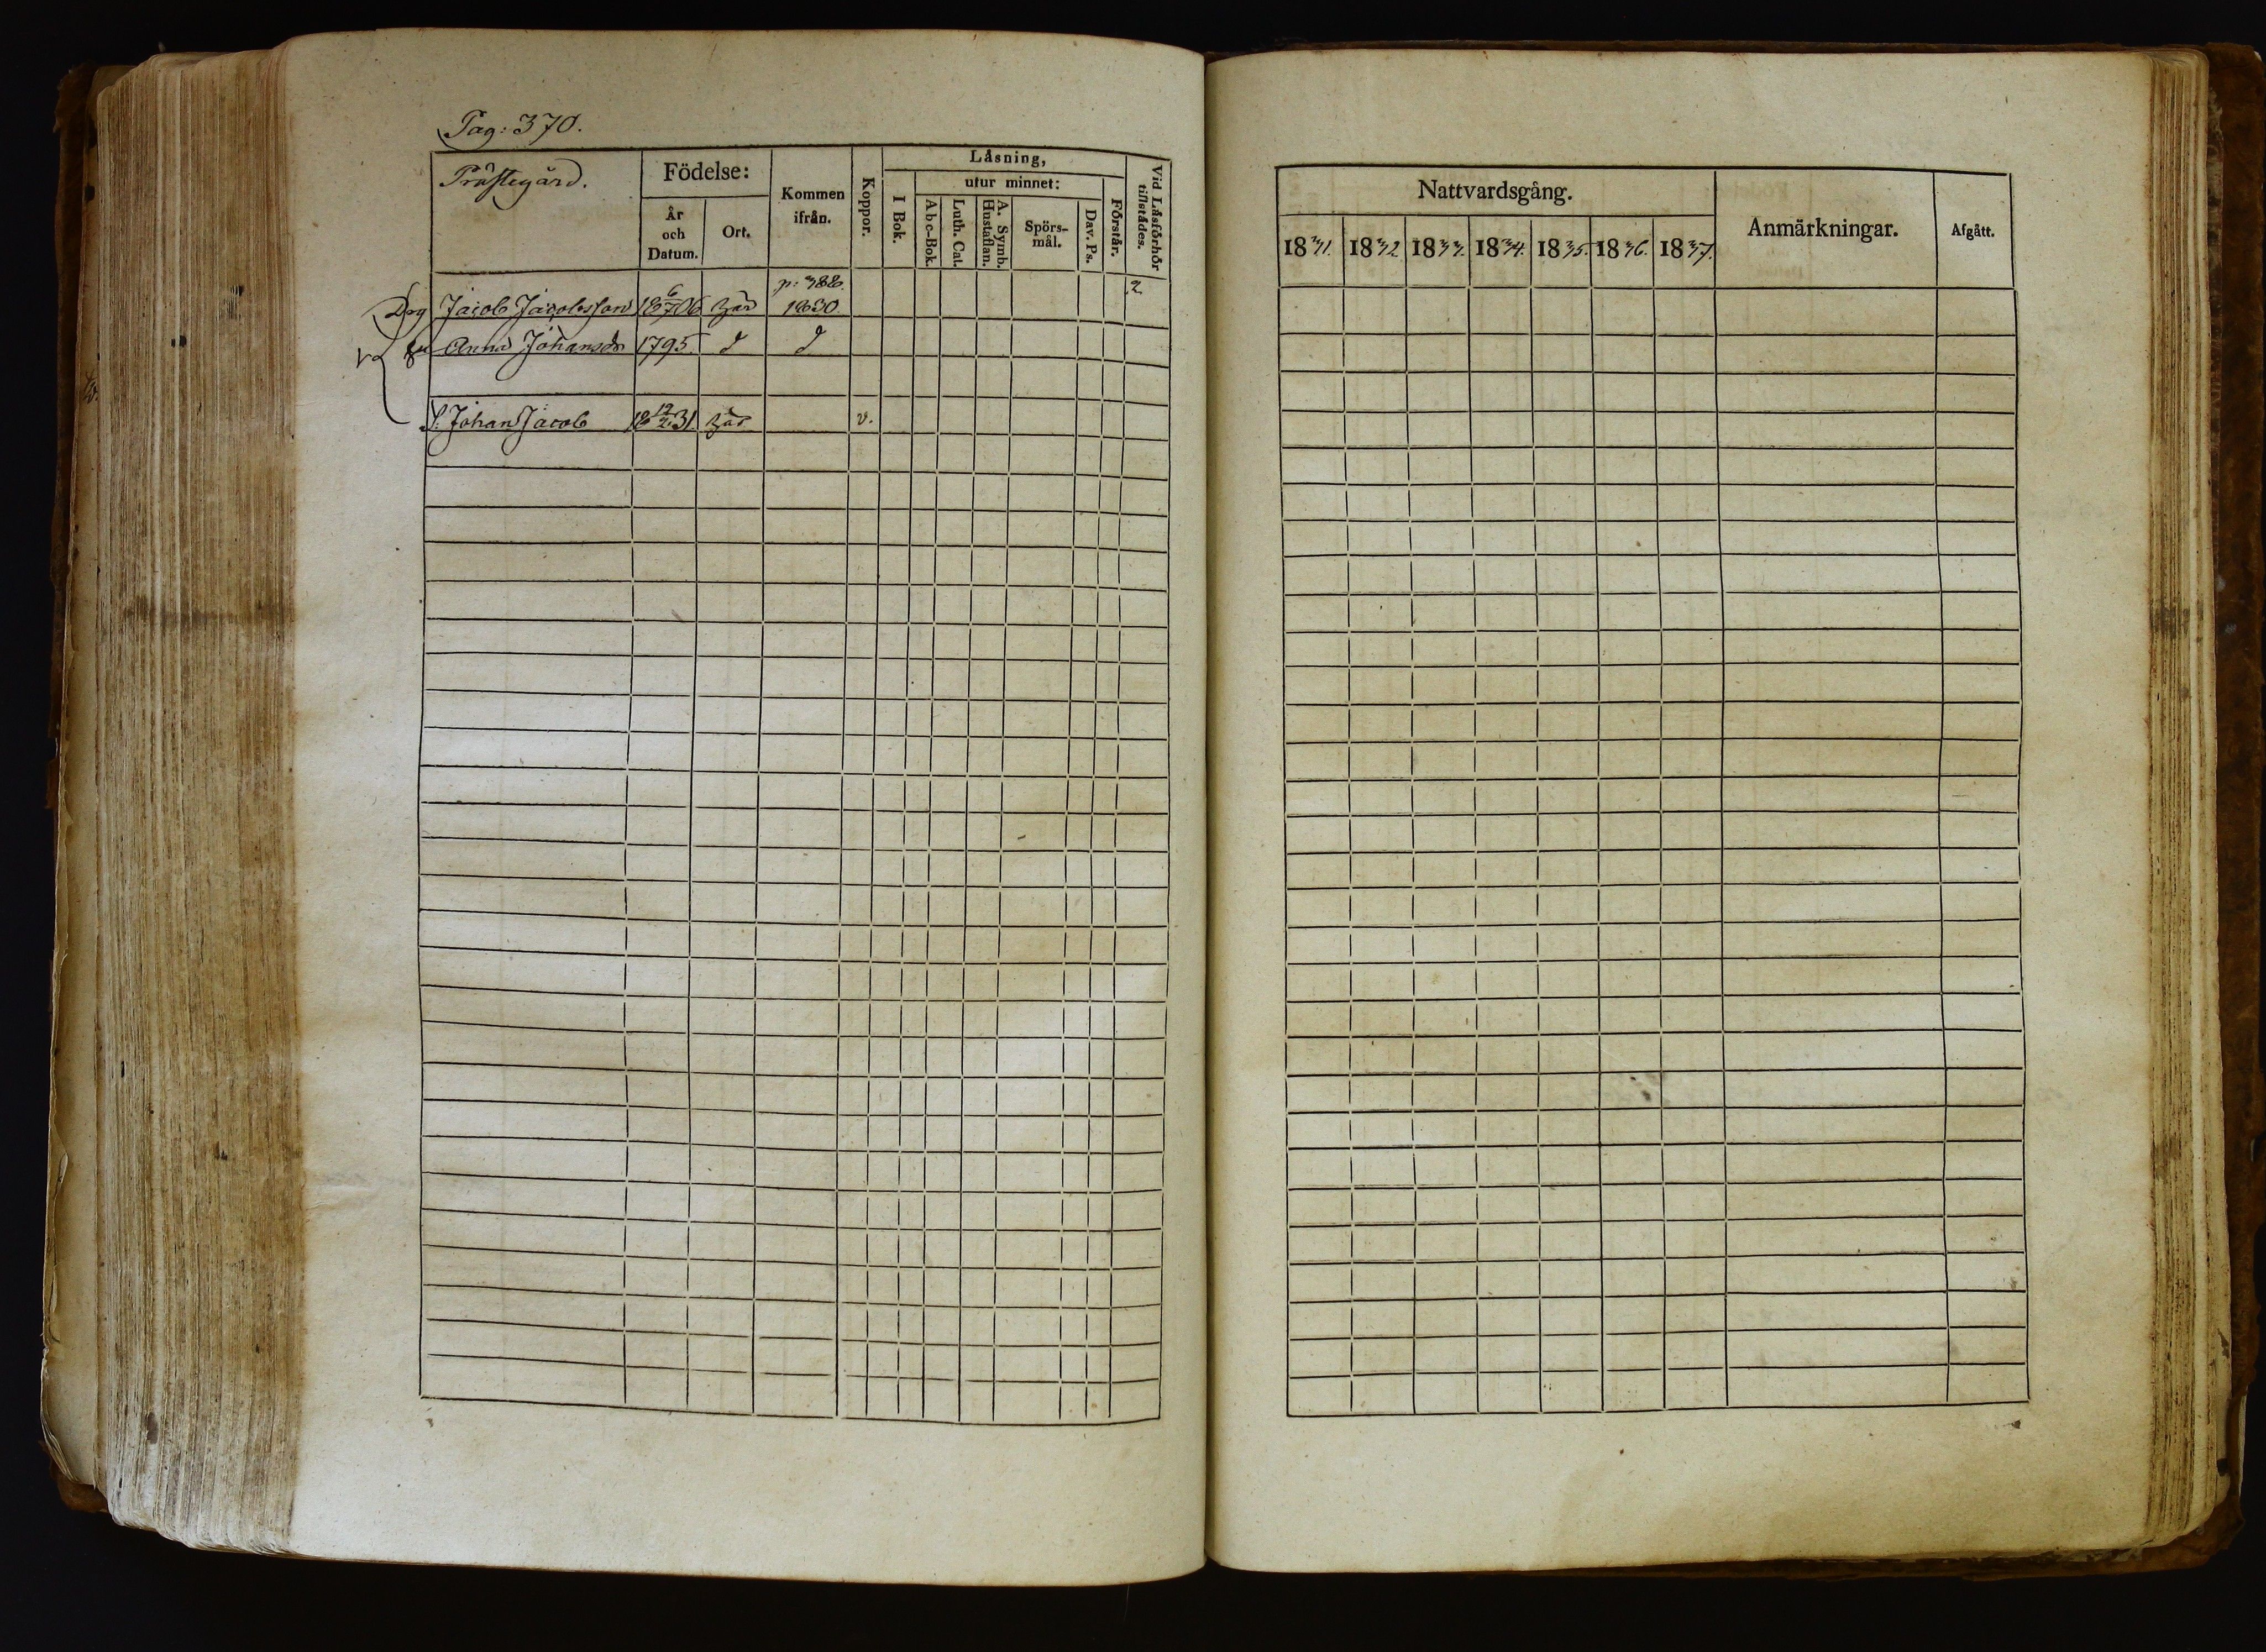 Pag: 370.
Prästegård.
Födelse:
År och Datum.
Ort.
Kommen ifrån.
Koppor.
Läsning,
I Bok.
utur minnet:
Abc-Bok.
Luth. Cat.
A. Symb. Hustaflan.
Spörsmål.
Dav. Ps.
Förstår.
Vid Läsförhör tillstådes.
p: 388. 2.
Drg Jacob Jacobsson 18 6/7 06 1830
Anna Johansdr 1795 d d
S. Johan Jacob 18 12/2 31. v.
Nattvardsgång.
1831. 1832 1833. 1834. 1835. 1836. 1837.
Anmärkningar.
Afgått.